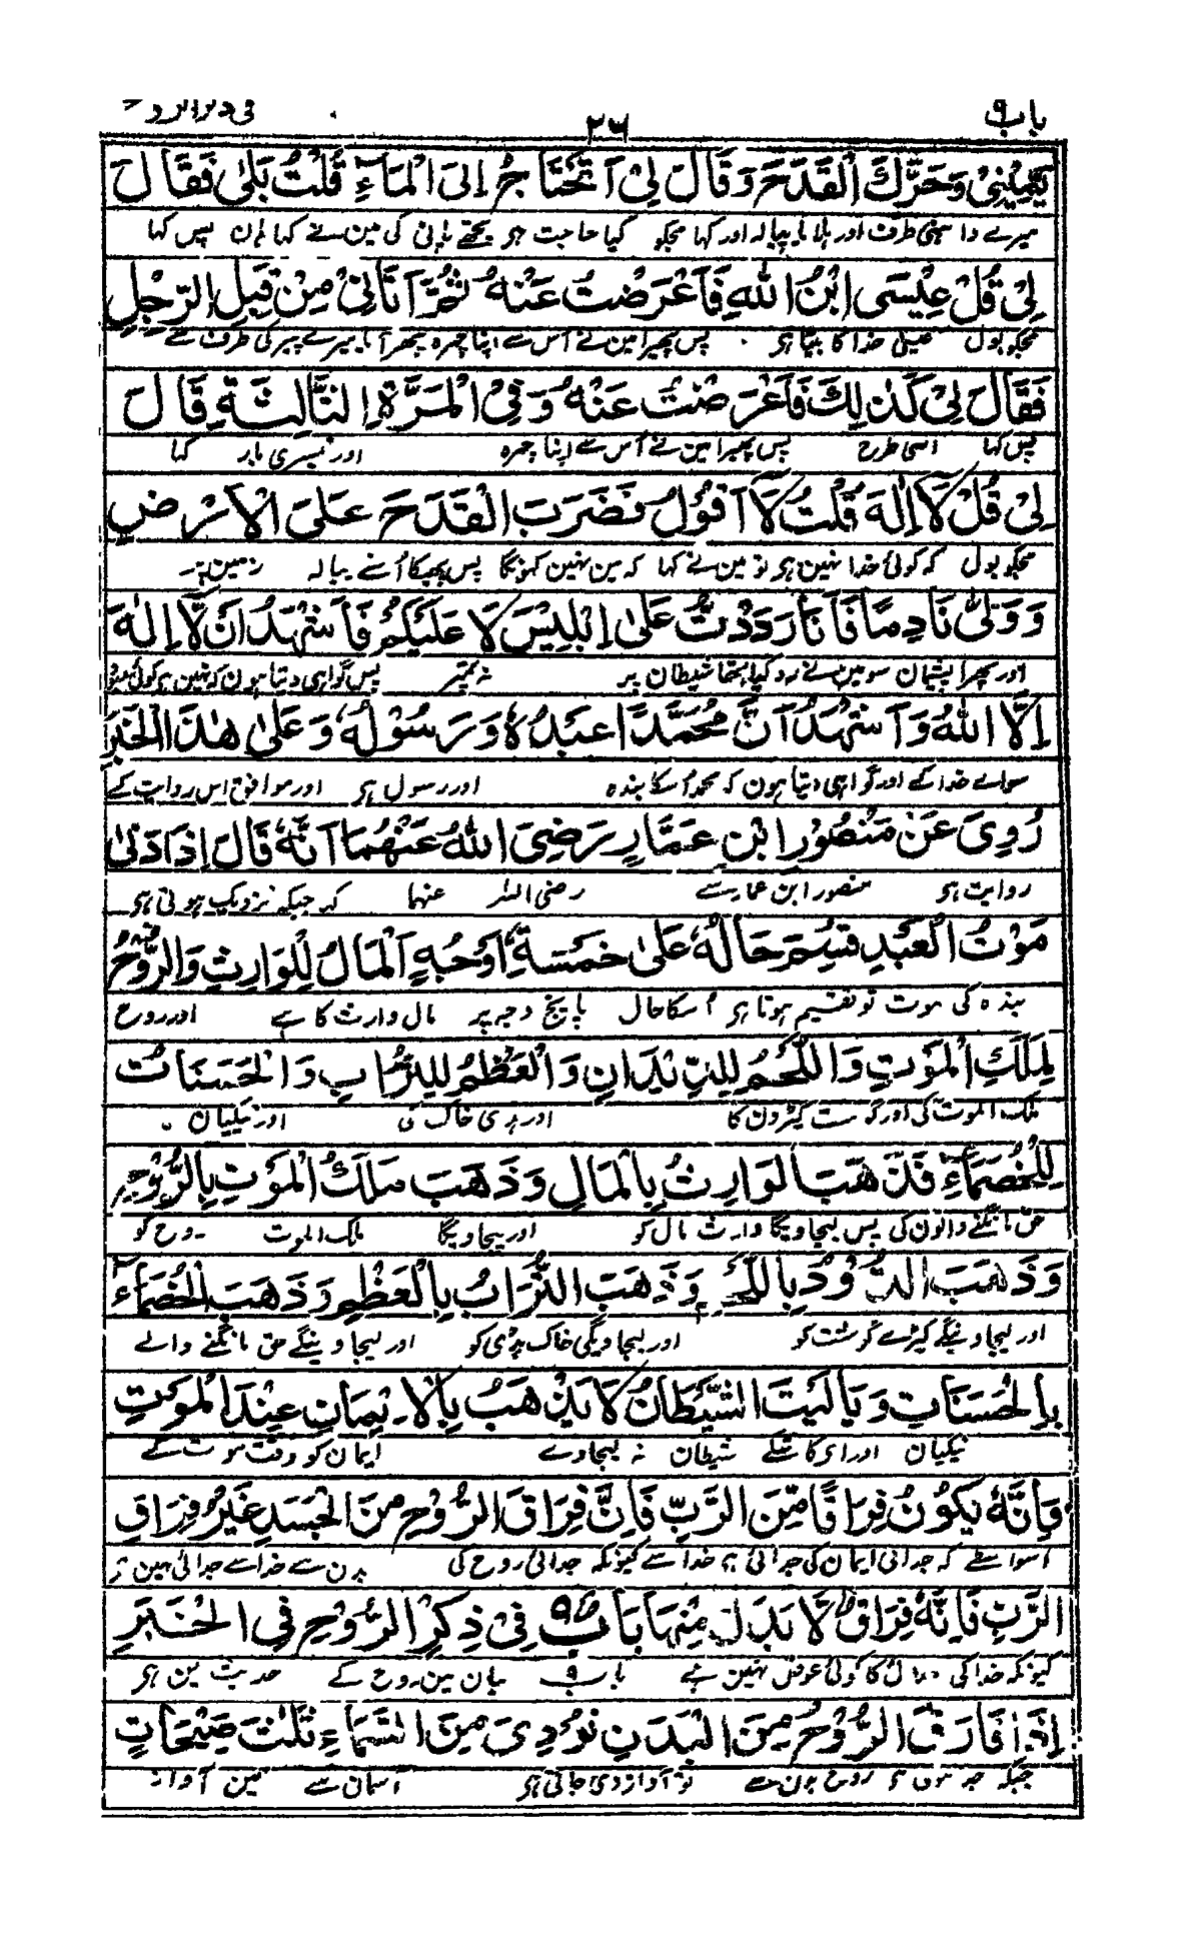 باب ۹ ٢٦ فی ذکر الروح
يَمِيْنِیْ وَحَرَّكَ الْقَدَحَ وَقَالَ لِیْ اَتَحْتَاجُ اِلَی الْمَاءِ قُلْتُ بَلٰی فَقَالَ
میرے داہنی طرف اور ہلایا پیالہ اور کہا مجکو کیا حاجت ہو تجھے پانی کی مین نے کہا ہان پس کہا
لِیْ قُلْ عِيْسَی ابْنُ اللهِ فَاَعْرَضْتُ عَنْهُ ثُمَّ اَتَانِیْ مِنْ قِبَلِ الرِّجْلِ
مجکو بول عیسیٰ خدا کا بیٹا ہو پس پھیرا مین نے اس سے اپنا چہرہ پھر آیا میرے پیر کی طرف سے
فَقَالَ لِیْ كَذٰلِكَ فَاَعْرَضْتُ عَنْهُ وَفِی الْمَرَّةِ الثَّالِثَةِ قَالَ
پس کہا اسی طرح پس پھیرا مین نے اس سے اپنا چہرہ اور تیسری بار کہا
لِیْ قُلْ لَا اِلٰهَ قُلْتُ لَا اَقُوْلُ فَضَرَبَ الْقَدَحَ عَلَی الْاَرْضِ
مجکو بول کہ کوئی خدا نہین ہو تو مین نے کہا کہ مین نہین کہونگا پس پھینکا اُسنے پیالہ زمین پر
وَوَلّٰی نَادِمًا فَاَنَا رَدَدْتُّ عَلٰی اِبْلِيْسَ لَا عَلَيْكُمْ فَاَشْهَدُ اَنْ لَّا اِلٰهَ
اور پھرا پشیمان سو مین نے رد کیا تھا شیطان پر نہ تمپر پس گواہی دیتا ہون کہ نہین ہو کوئی معبود
اِلَّا اللهُ وَاَشْهَدُ اَنَّ مُحَمَّدًا عَبْدُهٗ وَرَسُوْلُهٗ وَعَلٰی هٰذَا الْخَبَرِ
سواے خدا کے اور گواہی دیتا ہون کہ محمد اُسکا بندہ اور رسول ہو اور موافق اس روایت کے
رُوِیَ عَنْ مَنْصُوْرِ ابْنِ عَمَّارٍ رَضِیَ اللهُ عَنْهُمَا اَنَّهٗ قَالَ اِذَا دَنٰی
روایت ہو منصور ابن عمار سے رضی اللہ عنہما کہ جبکہ نزدیک ہوتی ہو
مَوْتُ الْعَبْدِ قُسِّمَ حَالُهٗ عَلٰی خَمْسَةِ اَوْجُهٍ اَلْمَالُ لِلْوَارِثِ وَالرُّوْحُ
بندہ کی موت تو تقسیم ہوتا ہو اُسکا حال پانچ وجہ پر مال وارث کا ہے اور روح
لِمَلَكِ الْمَوْتِ وَاللَّحْمُ لِلدِّيْدَانِ وَالْعَظْمُ لِلتُّرَابِ وَالْحَسَنَاتُ
ملک الموت کی اور گوشت کیڑون کا اور ہڈی خاک کی اور نیکیان
لِلْخُصَمَاءِ فَذَهَبَ الْوَارِثُ بِالْمَالِ وَذَهَبَ مَلَكُ الْمَوْتِ بِالرُّوْحِ
حق مانگنے والون کی پس لیجاویگا وارث مال کو اور لیجاویگا ملک الموت روح کو
وَذَهَبَ الدُّوْدُ بِاللَّحْمِ وَذَهَبَ التُّرَابُ بِالْعَظْمِ وَذَهَبَ الْخُصَمَاءُ
اور لیجاوینگے کیڑے گوشت کو اور لیجاویگی خاک ہڈی کو اور لیجاوینگے حق مانگنے والے
بِالْحَسَنَاتِ وَيَا لَيْتَ الشَّيْطَانُ لَا يَذْهَبُ بِالْاِيْمَانِ عِنْدَ الْمَوْتِ
نیکیان اور ای کاشکے شیطان نہ لیجاوے ایمان کو وقت موت کے
فَاِنَّهٗ يَكُوْنُ فِرَاقًا مِّنَ الرَّبِّ فَاِنَّ فِرَاقَ الرُّوْحِ مِنَ الْجَسَدِ غَيْرُ فِرَاقِ
اسواسطے کہ جدائی ایمان کی جدائی ہو خدا سے کیونکہ جدائی روح کی بدن سے خدا سے جدائی نہین
الرَّبِّ فَاِنَّهٗ فِرَاقٌ لَا بَدَلَ مِنْهَا بَابٌ ۹ فِیْ ذِكْرِ الرُّوْحِ فِی الْخَبَرِ
کیونکہ خدا کی کا کوئی عوض نہین ہے باب ۹ بیان مین روح کے حدیث مین ہو
اِذَا فَارَقَ الرُّوْحُ مِنَ الْبَدَنِ نُوْدِیَ مِنَ السَّمَاءِ ثَلٰثَ صَيْحَاتٍ
جبکہ روح بدن سے تو آواز دی جاتی ہو آسمان سے تین آواز